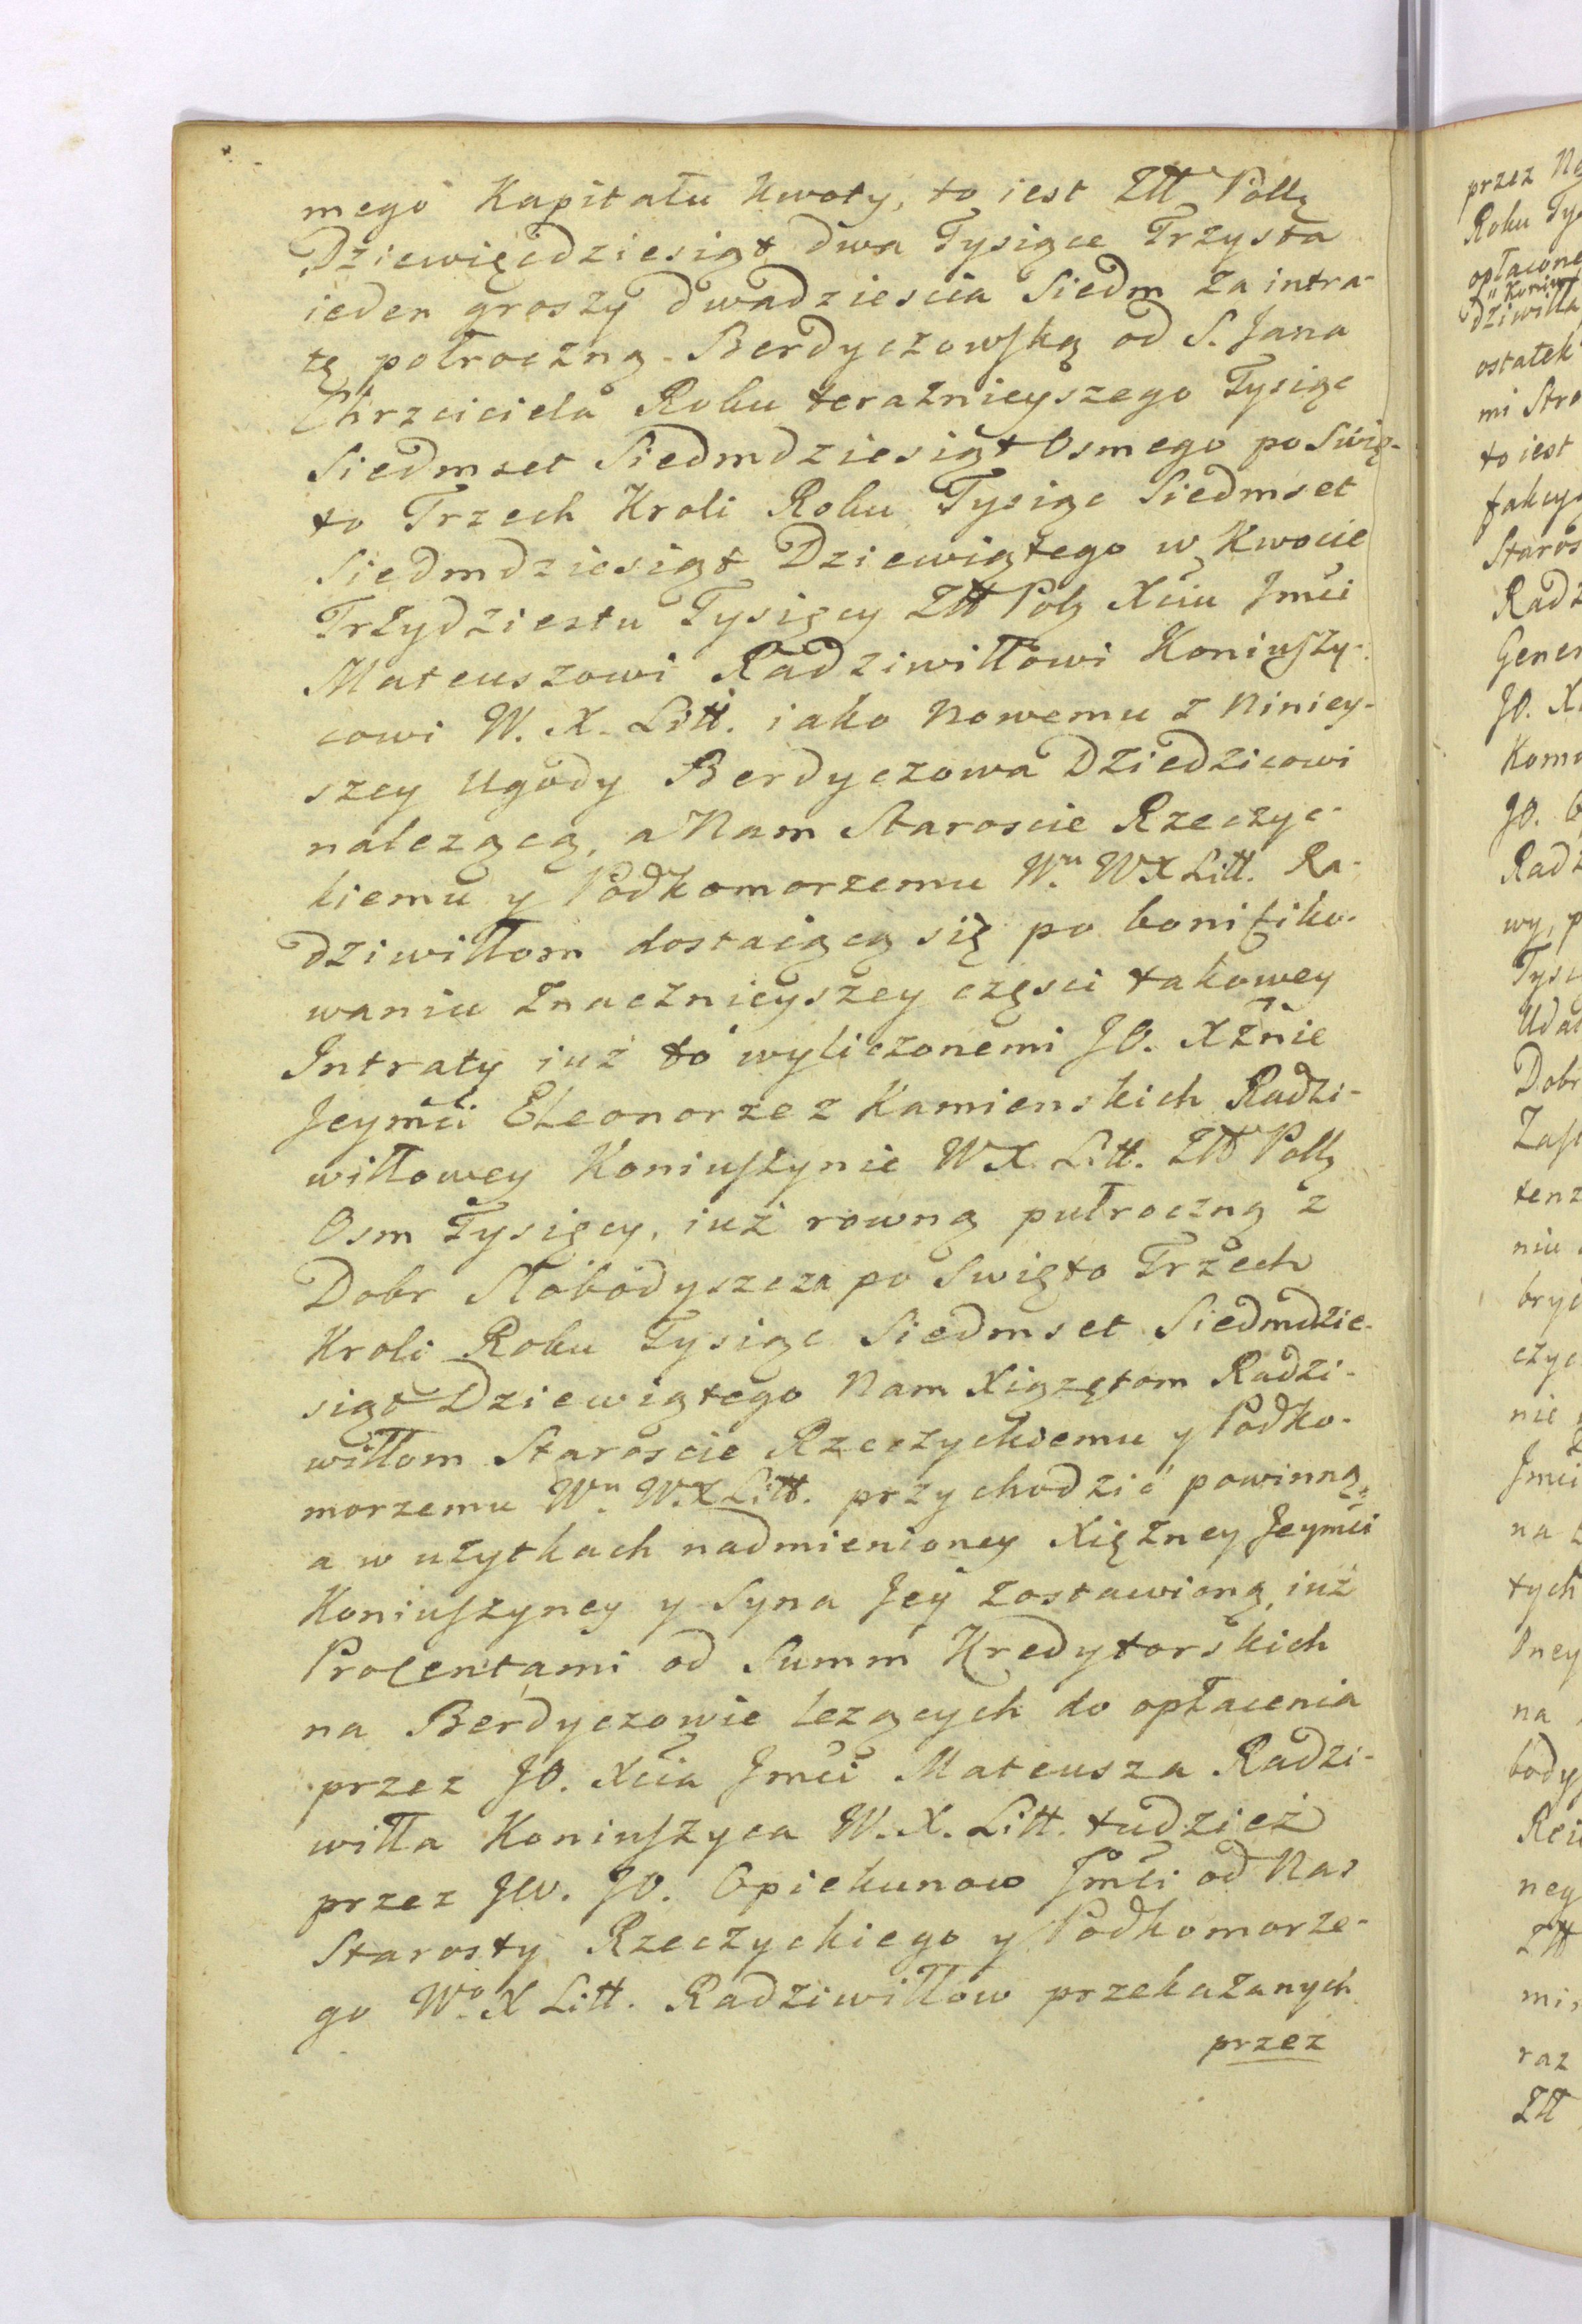 mego Kapitału Kwoty, to iest Złł Pollq
Dziewięcdziesiąt dwa Tysiące Trzysta
ieden groszy dwadziescia Siedm za intra-
tę połroczną Berdyczowską od S. Jana
Chrzciciela Roku teraznieyszego Tysiąc
Siedmset Siedmdziesiąt Osmego po Swię-
to Trzech Kroli Roku Tysiąc Siedmset
Siedmdziesiąt Dziewiątego w Kwocie
Trzydziestu Tysięcy Złł Polq Xciu Jmci
Mateuszowi Radziwiłłowi Koniuszy-
cowi W. X. Litt. iako Nowemu z Niniey-
szey Ugody Berdyczowa Dziedzicowi
nalezącą, a Nam Staroscie Rzeczyc-
kiemu y Podkomorzemu Wu WX Litt. Ra-
dziwiłłom dostaiącą się po bonifiko-
waniu Znacznieyszey częsci takowey
Intraty iuż to wyliczonemi JO. Xżnie
Jeymci Eleonorze z Kamienskich Radzi-
wiłłowey Koniuszynie WX. Litt. Złł Pollq
Osm Tysięcy, iuż rowną pułroczną z
Dobr Słobodyszcza po Swięto Trzech
Kroli Roku Tysiąc Siedmset Siedmdzie-
siąt Dziewiątego Nam Xiążętom Radzi-
wiłłom Staroscie Rzeczyckiemu y Podko-
morzemu Wu W.X Litt. przychodzić powinną,
a w użytkach nadmienioney Xiężney Jeymci
Koniuszyney y Syna Jey zostawioną, iuż
Procentami od Summ Kredytorskich
na Berdyczowie lezących do opłacenia
przez JO. Xcia Jmci Mateusza Radzi-
wiłła Koniuszyca W. X. Litt. tudzież
przez JW. JO. Opiekunow Jmci od Nas
Starosty Rzeczyckiego y Podkomorze-
go Wo X Litt. Radziwiłłow przekazanych
przez